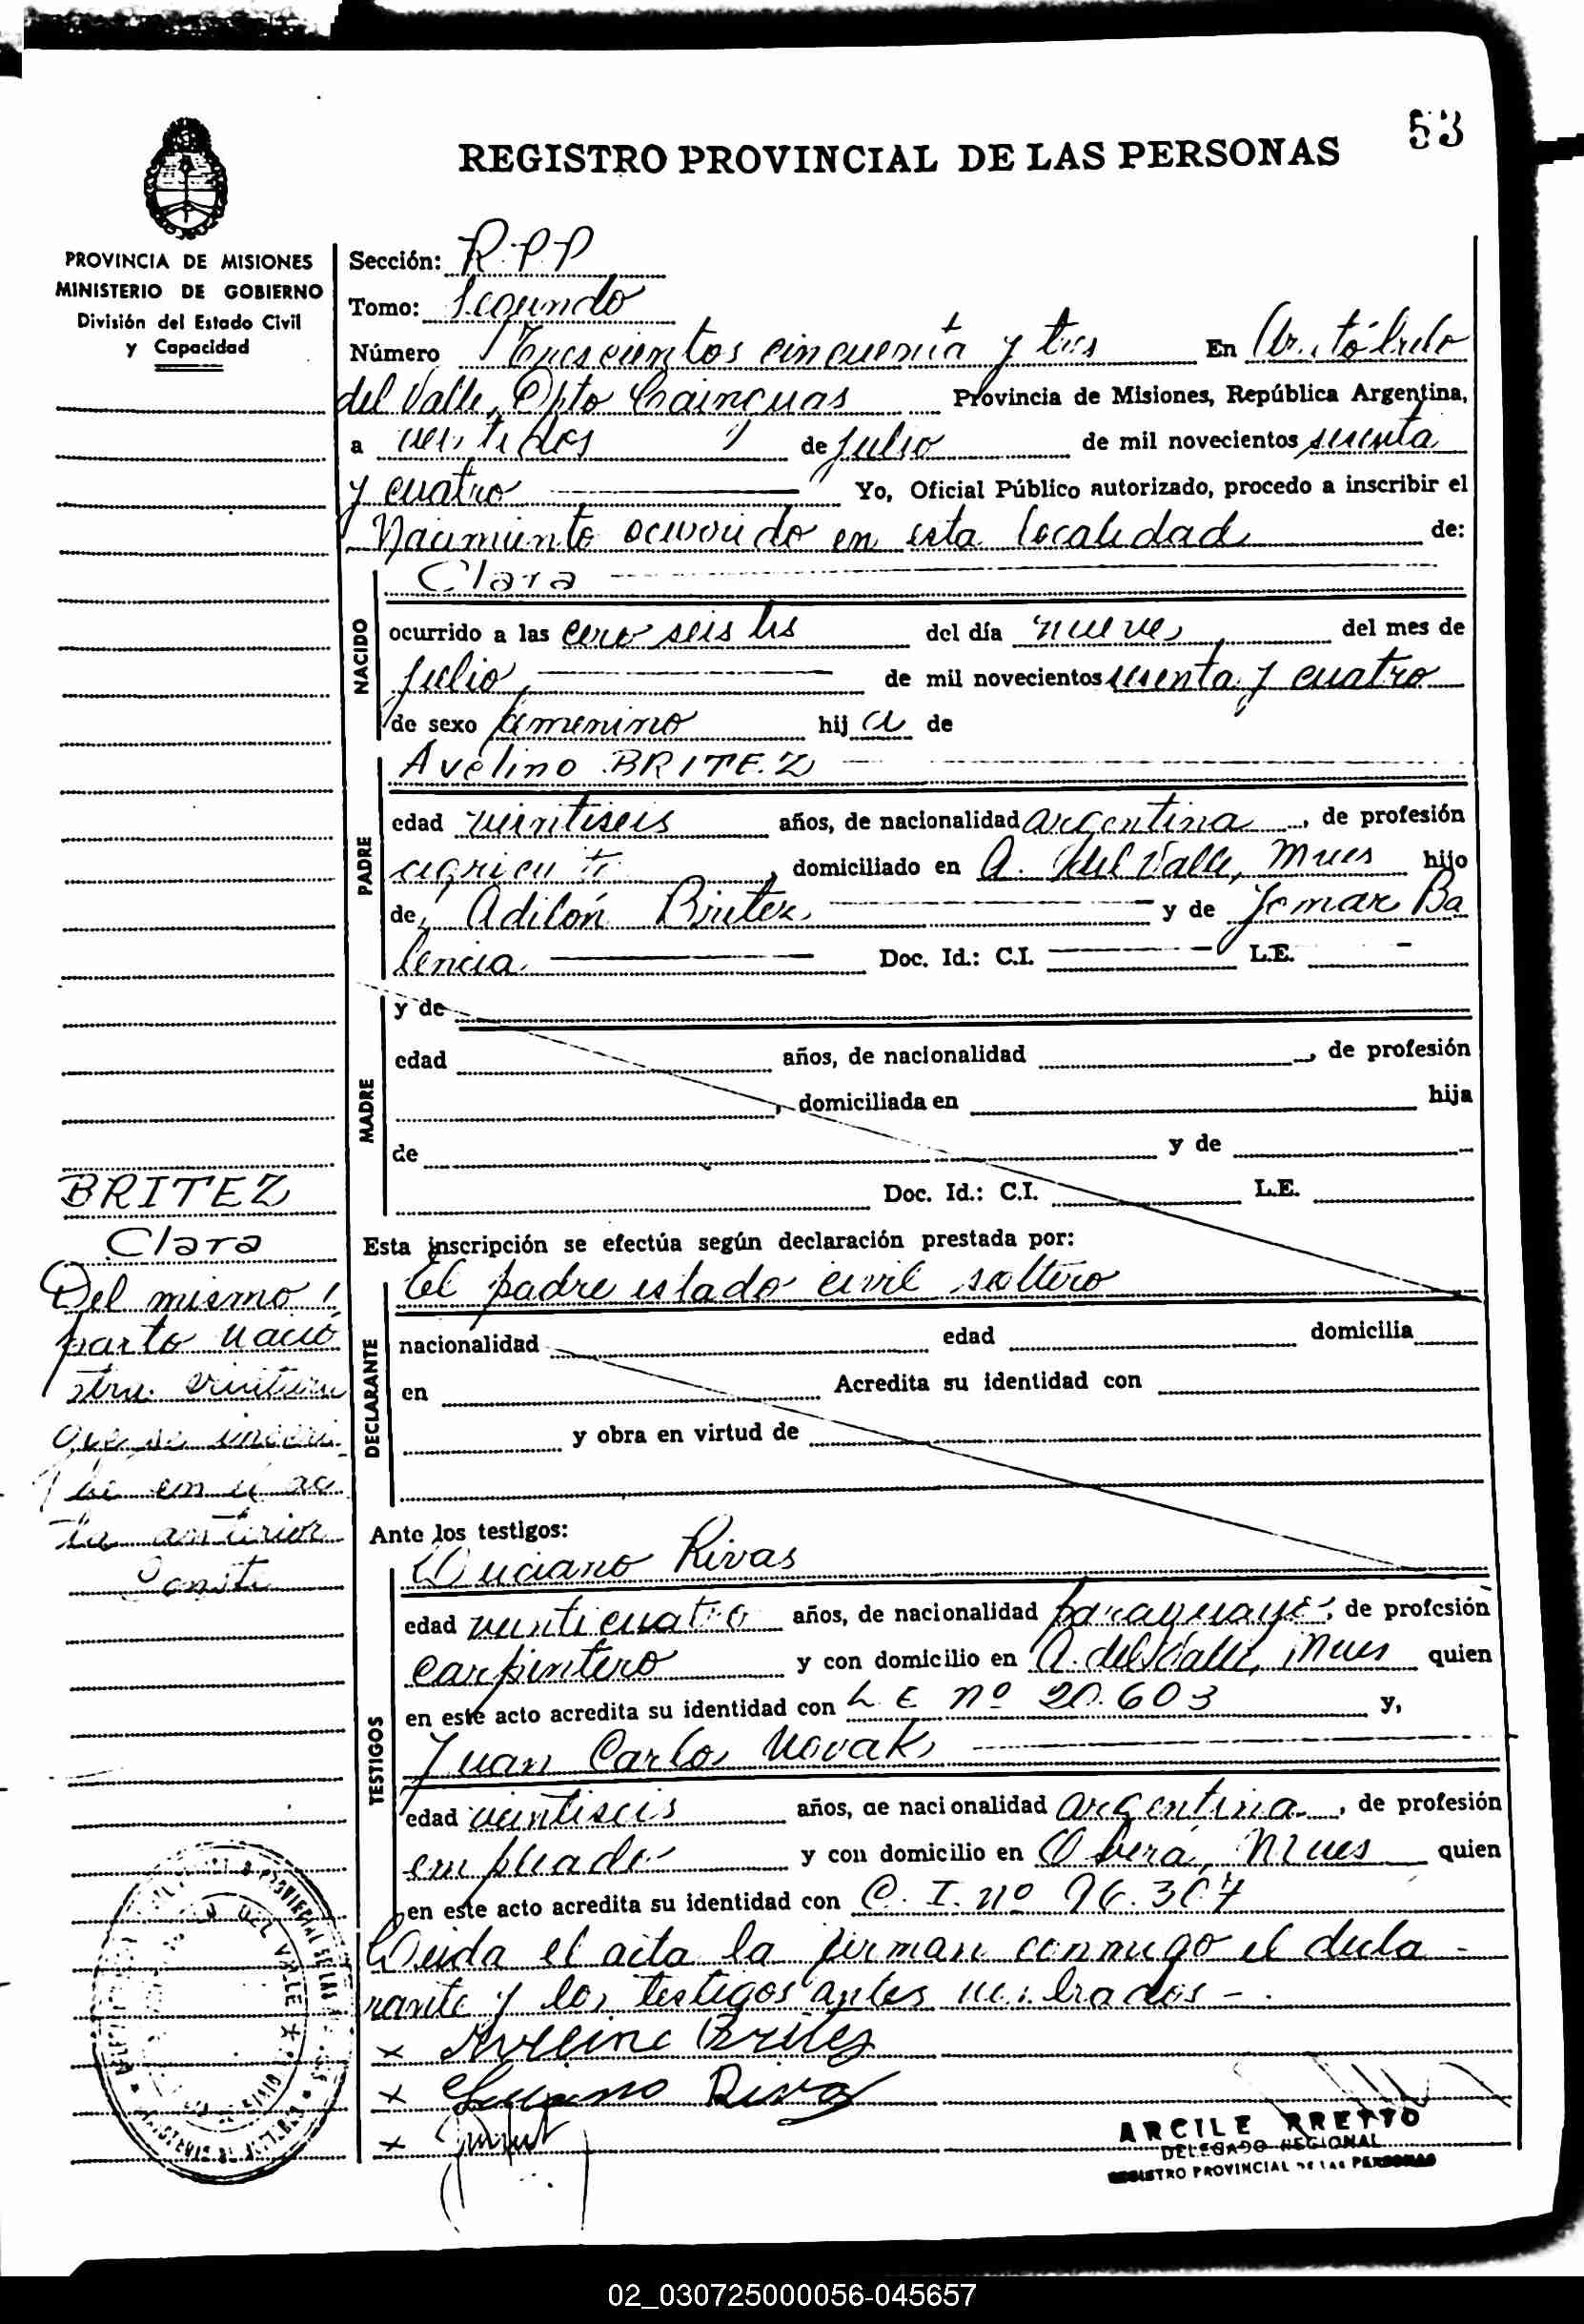 53
REGISTRO PROVINCIAL DE LAS PERSONAS
PROVINCIA DE MISIONES
MINISTERIO DE GOBIERNO
División del Estado Civil
y Capacidad
Sección: R.P.P
Tomo: Segundo
Número Trescientos cincuenta y tres En Aristóbulo
del Valle, Dpto Cainguas Provincia de Misiones, República Argentina,
a veintidos de Julio de mil novecientos sesenta
y cuatro Yo, Oficial Público autorizado, procedo a inscribir el
Nacimiento ocurrido en esta localidad de:
NACIDO
Clara
ocurrido a las cero seis hs del día nueve del mes de
Julio de mil novecientos sesenta y cuatro
de sexo femenino hij a de
PADRE
Avelino BRITEZ
edad veintiseis años, de nacionalidad argentina, de profesión
domiciliado en A. del Valle, Mnes hijo
de Adilón Britez y de Jomar Ba
lencia Doc. Id.: C.I. L.E.
MADRE
y de
edad años, de nacionalidad , de profesión
, domiciliada en hija
de y de
Doc. Id.: C.I. L.E.
Esta inscripción se efectúa según declaración prestada por:
DECLARANTE
El padre estado civil soltero
nacionalidad edad domicilia
en Acredita su identidad con
y obra en virtud de
BRITEZ
Clara
Del mismo
parto nació
otra
que se inscri
be en el ac
ta anterior
Conste
Ante los testigos:
TESTIGOS
Luciano Rivas
edad veinticuatro años, de nacionalidad paraguaya, de profesión
carpintero y con domicilio en A. del Valle, Mnes quien
en este acto acredita su identidad con L.E nº 20.603 y,
Juan Carlos Novak
edad veintiseis años, de nacionalidad argentina, de profesión
empleado y con domicilio en Oberá, Mnes quien
en este acto acredita su identidad con C.I. nº 96.367
Leida el acta la firman conmigo el decla-
rante y los testigos antes nombrados-.
x Avelino Britez
x Luciano Rivas
x
DELEGADO REGIONAL
REGISTRO PROVINCIAL DE LAS PERSONAS
02_030725000056-045657